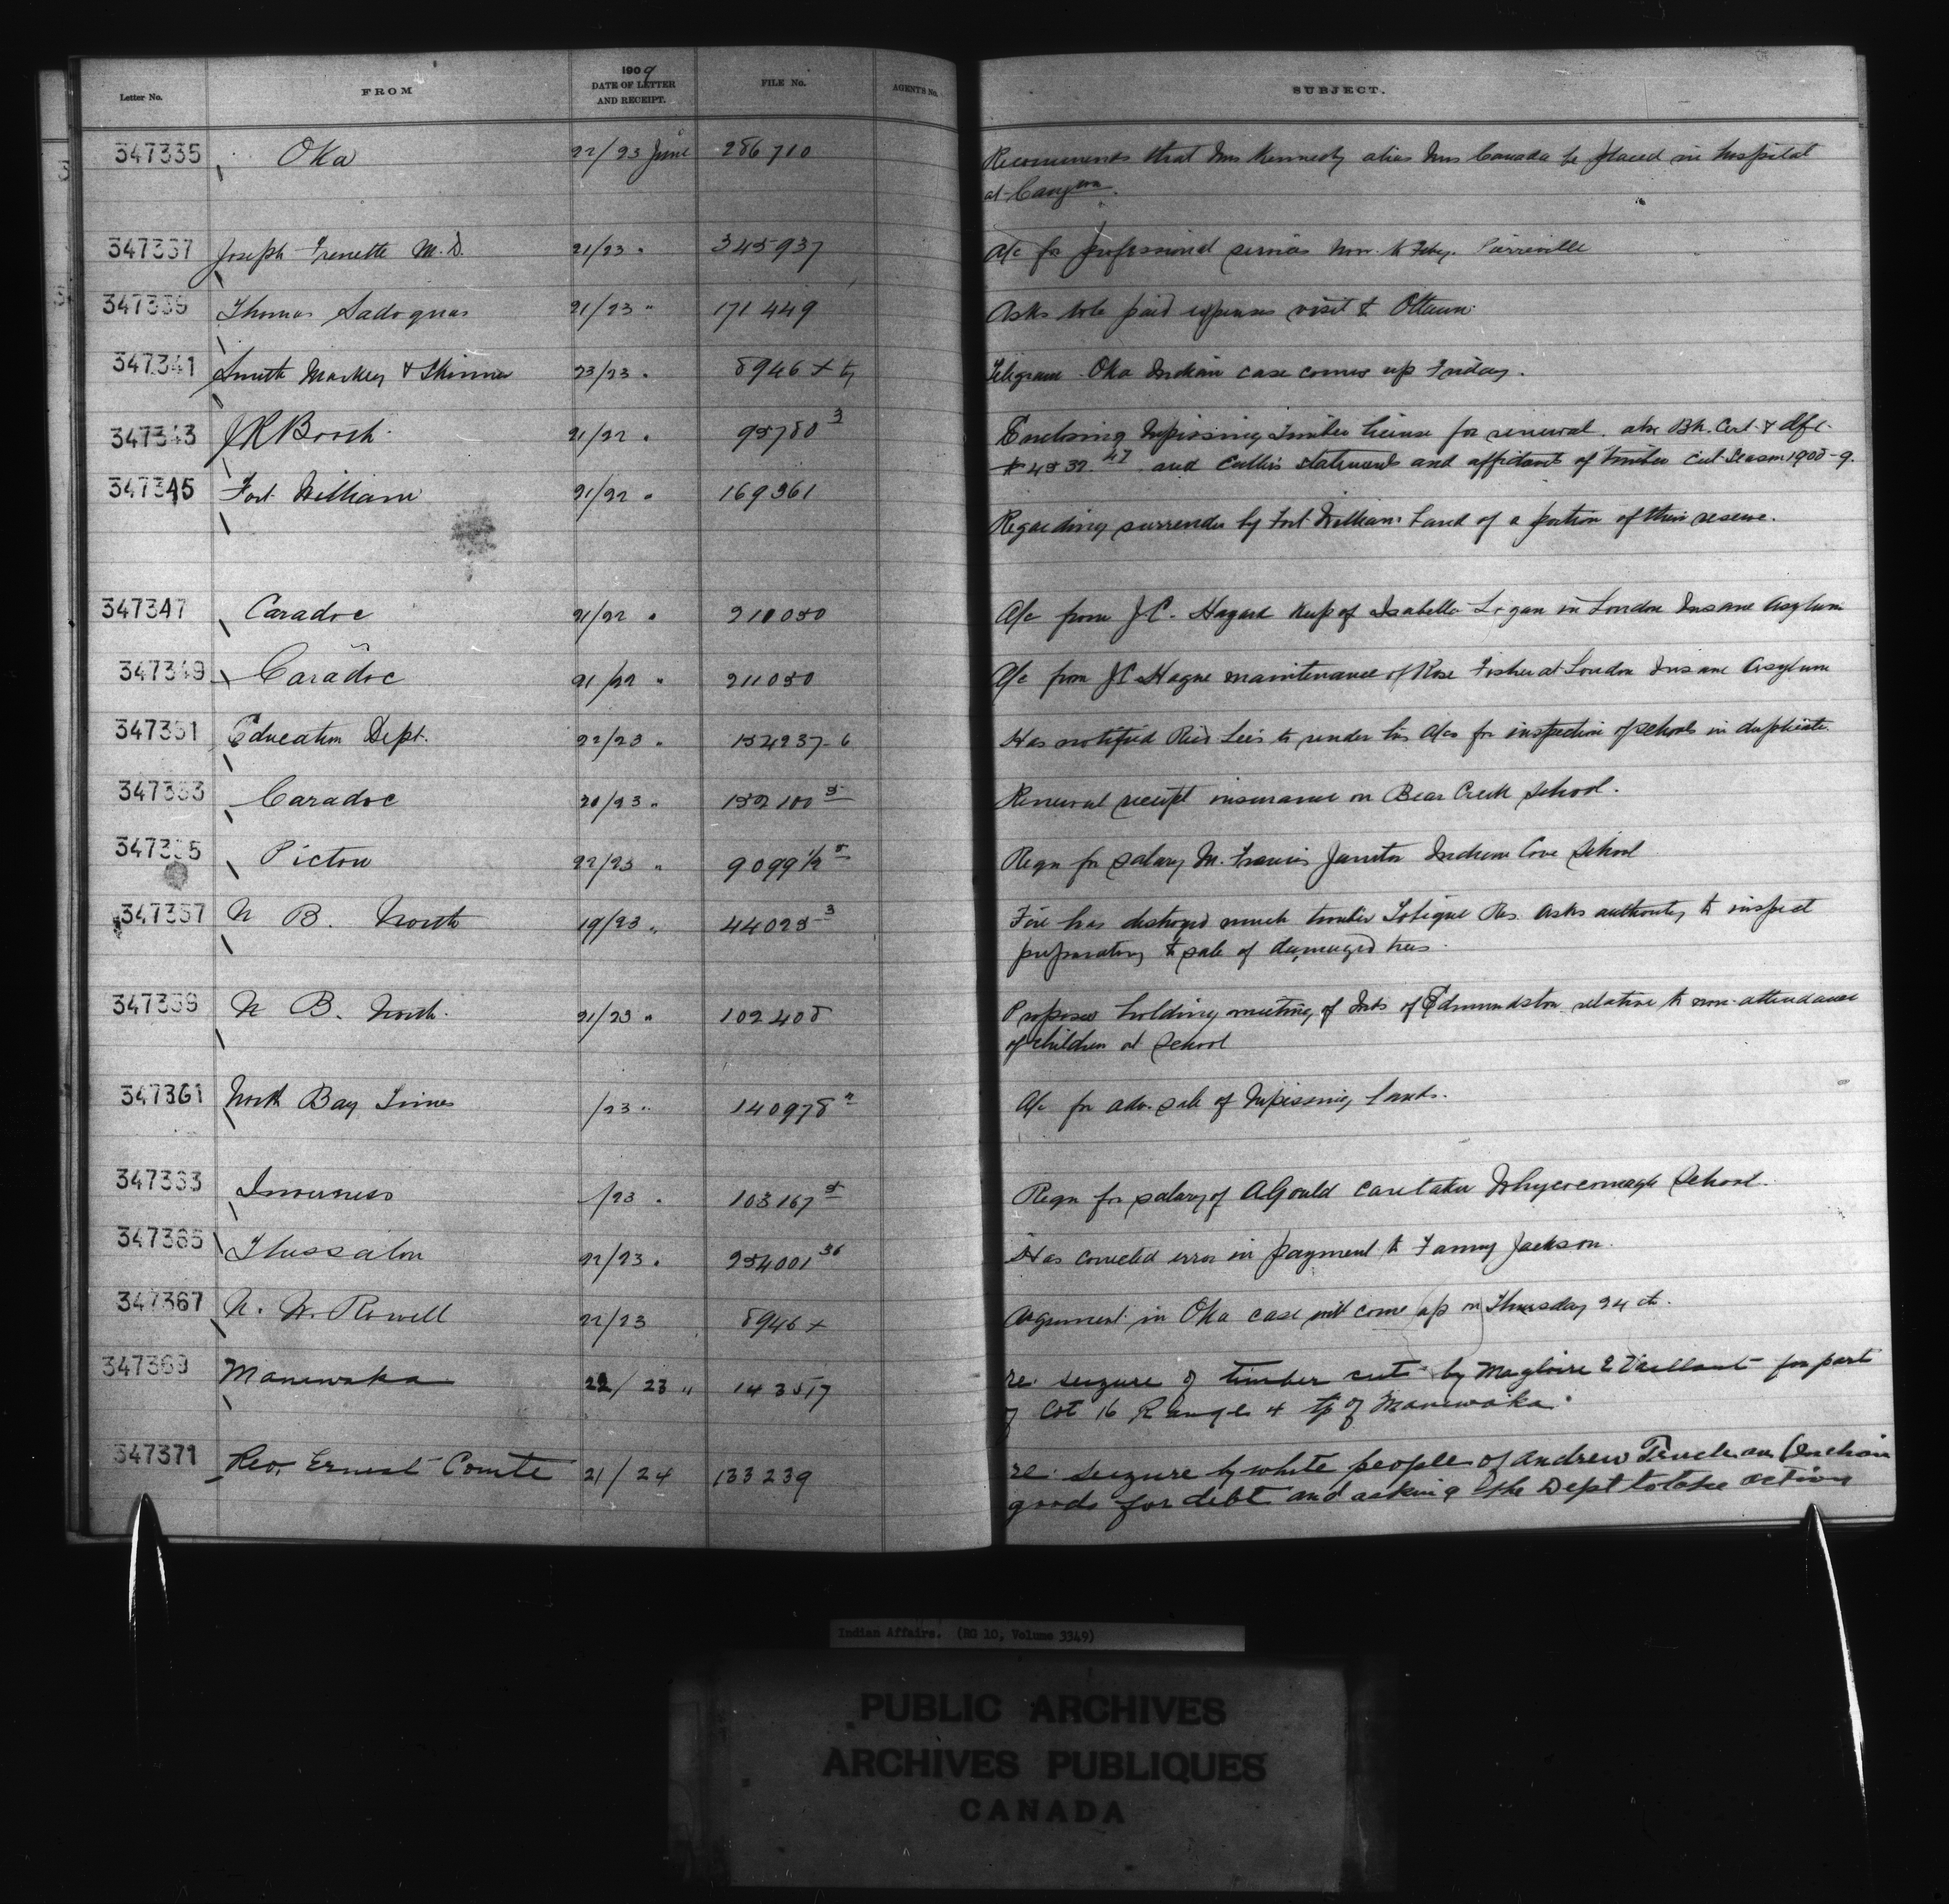 Letter No. FROM 1909 DATE OF LETTER AND RECEIPT. FILE No. AGENT'S No. SUBJECT.
347335 Oka 22/23 June 286710 Recommends that Mrs Kennedy alias Mrs Canada be placed in hospital
at
347337 Joseph Frenette M.D. 21/23 " 345937 A/c for professional services Nov. to Feby. Pierreville
347339 Thomas Sadoques 21/23 " 171449 Asks to be paid expenses visit to Ottawa
347341 Smith Markey & Skinner 23/23 " 8946 Telegram Oka Indian case comes up Friday.
347343 J R Booth 21/22 " 95780 3 Enclosing Nipissing Timber license for renewal. also Bk. Cert. & dft.
$4532.47 and Cullers statements and affidavits of timber cut Season 1908-9.
347345 Fort William 21/22 " 169361
Regarding surrender by Fort William band of a portion of their reserve.
347347 Caradoc 21/22 " 211050 A/c from J.C. Hagard keep of Isabella Logan in London Insane Asylum
347349 Caradoc 21/22 " 211050 A/c from J C Hague maintenance of Rose Fisher at London Insane Asylum
347351 Education Dept. 22/23 " 154237-6 Has notified Lees to render his A/cs for inspection of schools in duplicate.
347353 Caradoc 20/23 " 152100 5 Renewal receipt insurance on Bear Creek School.
347355 Pictou 22/23 " 9099 1/2 5 Reqn for salary M. Francis Janitor Indian Cove School
347357 N B. North 19/23 " 44025-3 Fire has destroyed much timber Tobique Res. Asks authority to inspect
preparatory to sale of damaged trees.
347359 N B. North. 21/23 " 102408 Proposes holding meeting of Inds of Edmundston relative to non-attendance
of children at School
347361 North Bay Times /23 " 140978 2 A/c for adv. sale of Nipissing lands.
347363 Inverness /23 " 103167 5 Reqn for salary of A Gould caretaker Whycocomagh School.
347365 Thessalon 22/23 " 254001 36 Has corrected error in payment to Fanny Jackson.
347367 N. W. Rowell 22/23 8946 x Argument in Oka case will come up on Thursday 24th.
347369 Maniwaka 22/23 " 143517 re. seizure of timber cut by Magloire Vaillant for part
of Lot 16 Range 4 tp of Maniwaka.
347371 Rev. Ernest Comte 21/24 133239 re. seizure by white people of Andrew (Indian
goods for debt and asking the Dept to take action
Indian Affairs. (RG 10, Volume 3349)
PUBLIC ARCHIVES
ARCHIVES PUBLIQUES
CANADA